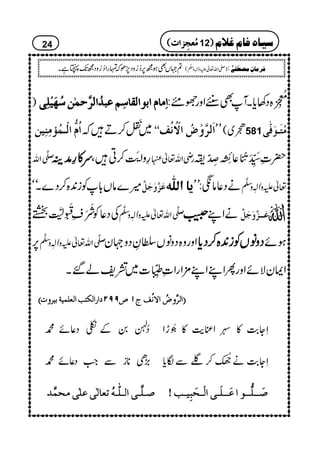 سیاہ فام غلام (12 معجزات) 24
فرمانِ مصطفٰے (صلی اللہ تعالٰی علیہ والہٖ وسلم) تم جہاں بھی ہو مجھ پر دُرُود پڑھو کہ تمہارا دُرُود مجھ تک پہنچتا ہے۔
مُعْجِزہ دکھایا۔ آپ بھی سنئے اور جھومئے: امام ابوالقاسِم عبدُالرَّحمٰن سُھَیْلی (
مُتَوَفّٰی 581 ہجری) ’’اَلرَّوْضُ الْاُنُف‘‘ میں نَقْل کرتے ہیں کہ اُمُّ الْمُؤْمِنِین
حضرتِ سَیِّدَتُنا عائِشہ صِدّیقہ رضی اللہ تعالٰی عنہا رِوایَت کرتی ہیں، سرکارِ مدینہ صلی اللہ
تعالٰی علیہ والہٖ وسلم نے دعا مانگی: ’’یا اللہ عَزَّوَجَلَّ میرے ماں باپ کو زندہ کر دے۔‘‘
اللہ عَزَّوَجَلَّ نے اپنے حبیب صلی اللہ تعالٰی علیہ والہٖ وسلم کی دعا کو شَرَفِ قَبُولِیَّت بخشتے
ہوئے دونوں کو زندہ کر دیا اور وہ دونوں سلطانِ دو جہان صلی اللہ تعالٰی علیہ والہٖ وسلم پر
ایمان لائے اور پھر اپنے اپنے مزاراتِ طَیِّبات میں تشریف لے گئے۔
(الرَّوضُ الانُف ج ١ ص ٢٩٩ دارالکتب العلمیة بیروت)
اِجابت کا سہرا عنایت کا جوڑا دُلہن بن کے نکلی دعائے محمد
اِجابت نے جُھک کر گلے سے لگایا بڑھی ناز سے جب دعائے محمد
صَلُّوا عَلَی الْحَبِیب ! صلَّی اللّٰہُ تعالٰی علٰی محمَّد